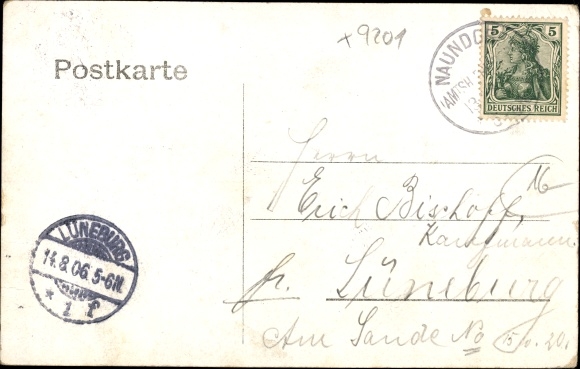 +9201
Postkarte
5 5
DEUTSCHES REICH
NAUNDO
(AMTSH.
13
Herrn
Erich Bischoff,
16
Kaufmann
fr. Lüneburg
Am Sande No 15 u. 20.
LÜNEBURG
14.8.06.5-6N.
* 1 f